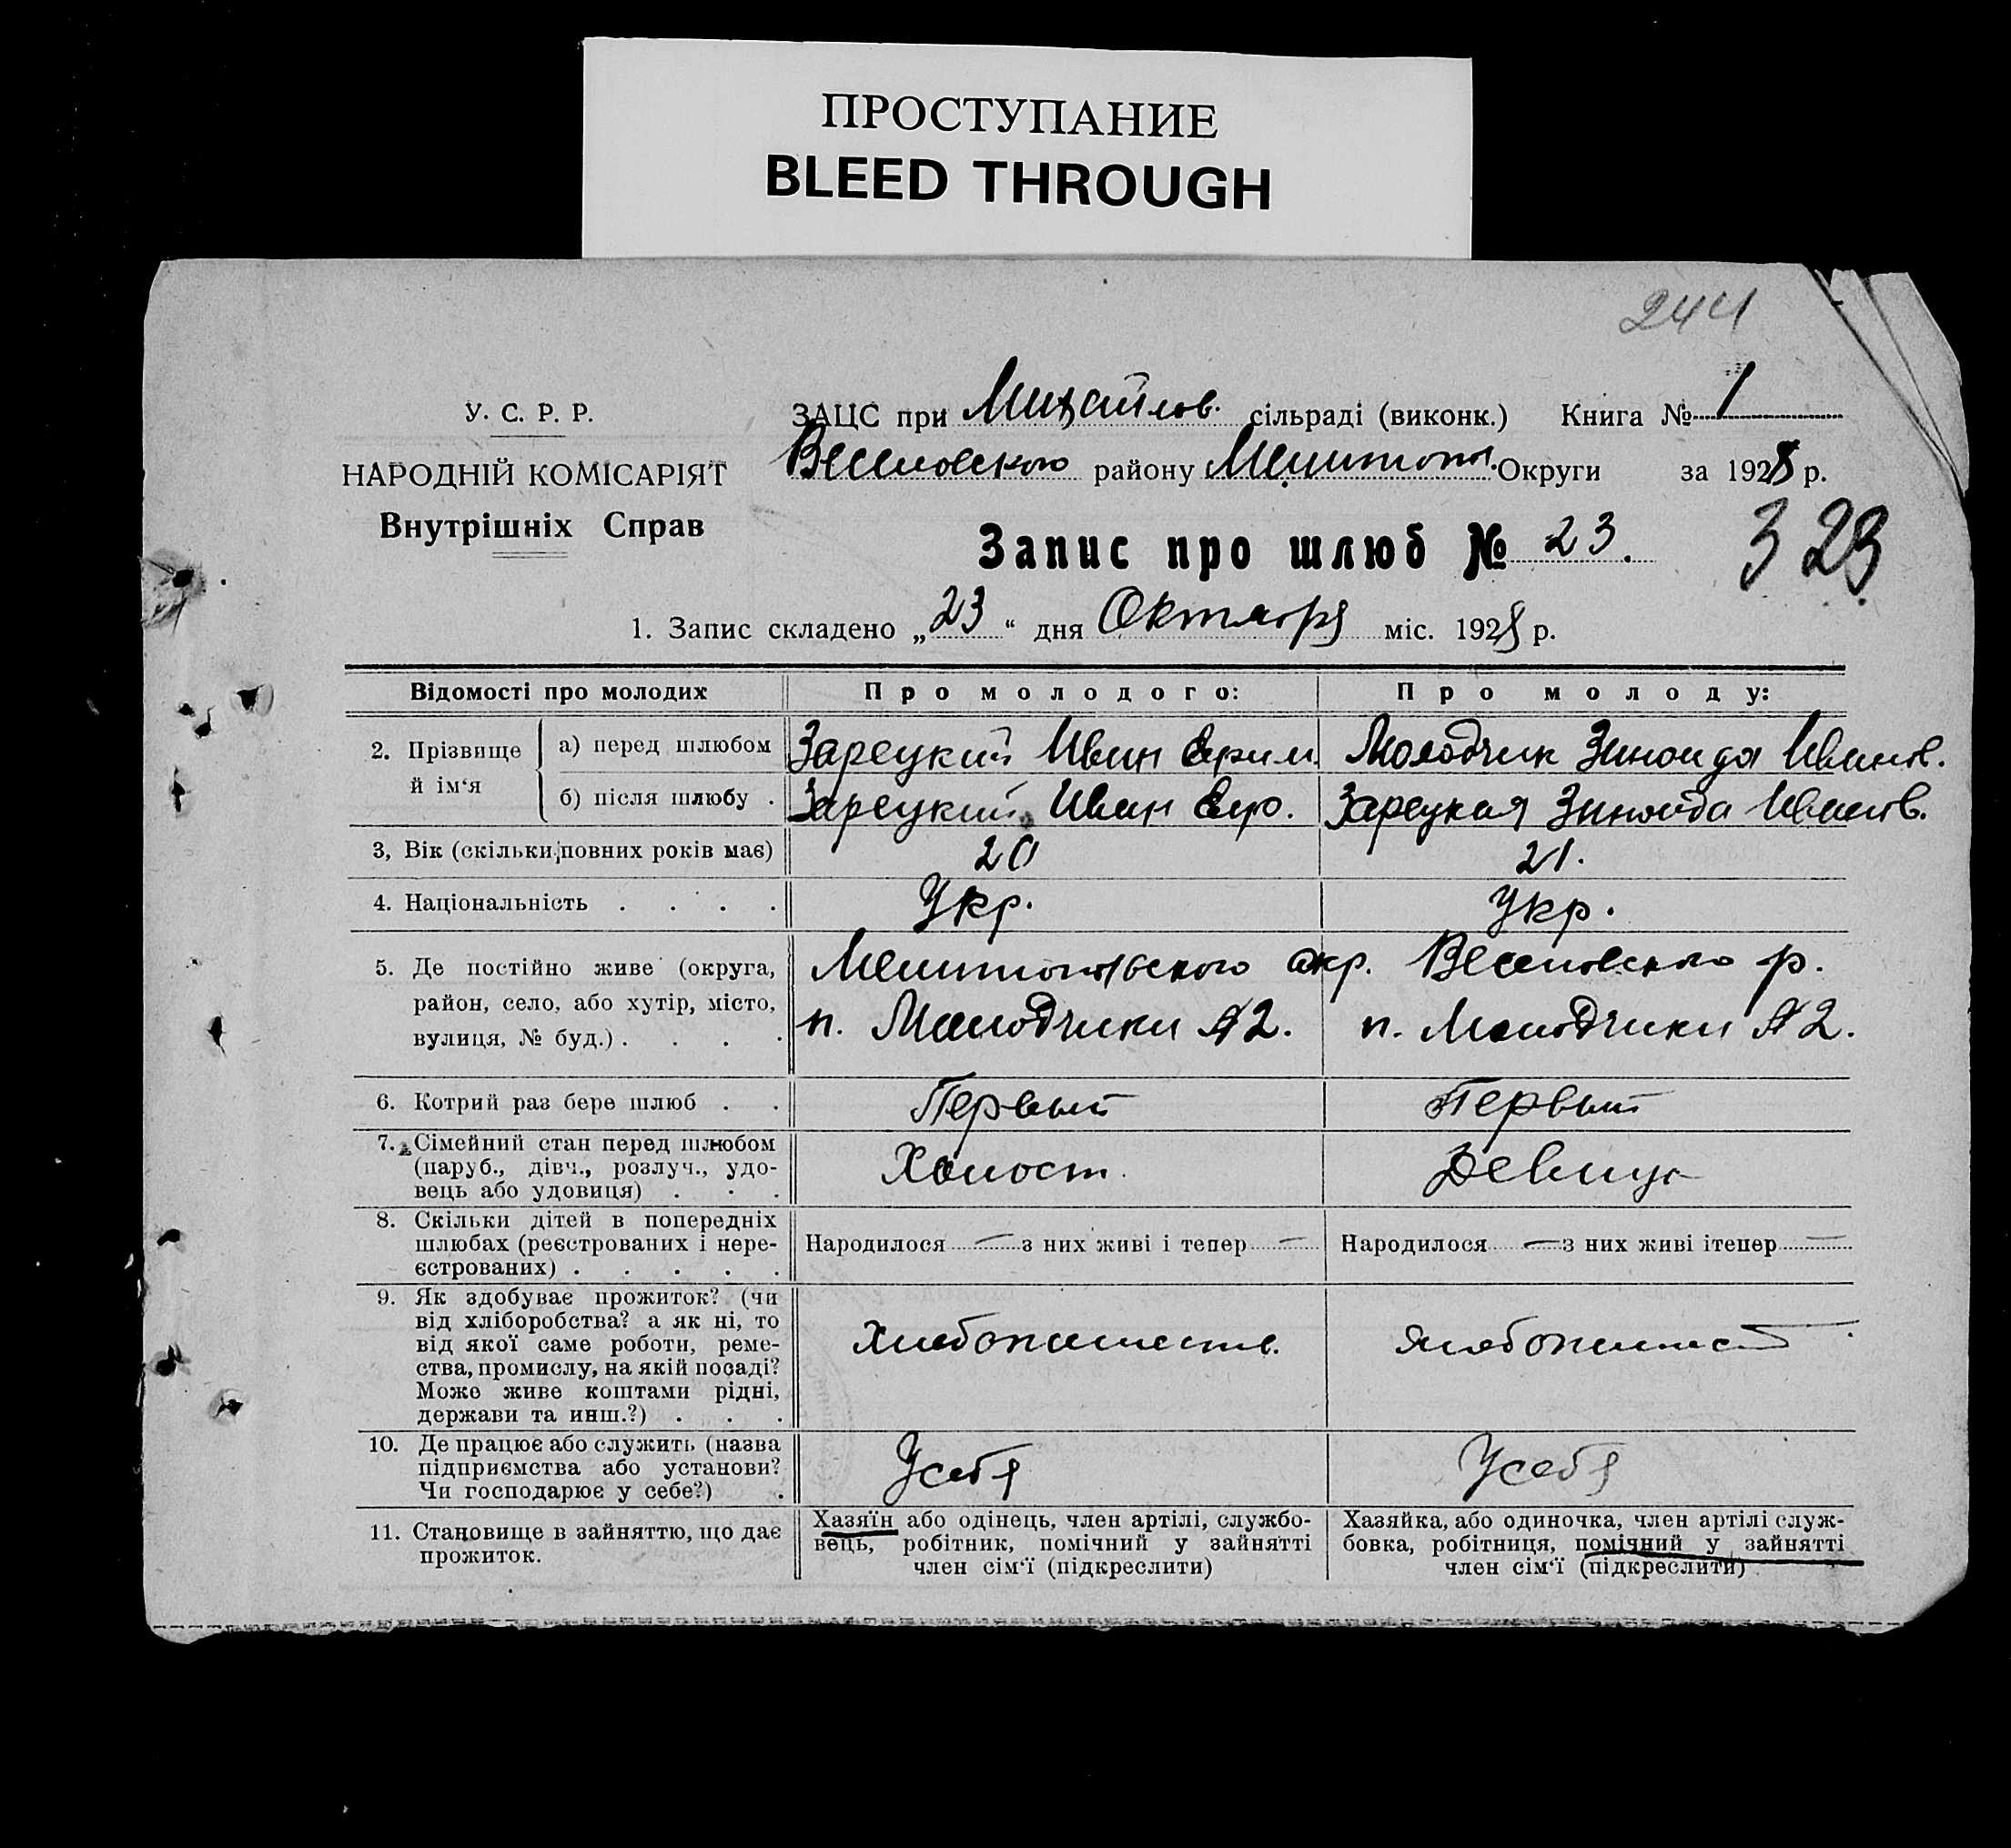 ПРОСТУПАНИЕ
BLEED THROUGH
244
У. С. Р. Р.
НАРОДНІЙ КОМІСАРІЯТ
Внутрішніх Справ
ЗАЦС при Михайлов. сільраді (виконк.) Книга № 1
Веселовского району Мелитопол. Округи за 1928 р.
Запис про шлюб № 23.
323
1. Запис складено „23“ дня Октября міс. 1928 р.
Відомості про молодих Про молодого: Про молоду:
2. Прізвище й ім‘я
а) перед шлюбом Зарецкий Иван Ефим. Молодчик Зиноида Иванов.
б) після шлюбу . Зарецкий Иван Зарецкая Зиноида Иванов.
3, Вік (скільки повних років має) 20 21.
4. Національність . . . . Укр. Укр.
5. Де постійно живе (округа,
район, село, або хутір, місто,
вулиця, № буд.) . . . .
Мелитопольского окр. Веселовского р.
п. Молодчики № 2. п. Молодчики № 2.
6. Котрий раз бере шлюб . . Первый Первый
7. Сімейний стан перед шлюбом
(паруб., дівч., розлуч., удо-
вець або удовиця) . . .
Холост. Девица
8. Скільки дітей в попередніх
шлюбах (реєстрованих і нере-
єстрованих) . . . . .
Народилося — з них живі і тепер — Народилося — з них живі ітепер —
9. Як здобуває прожиток? (чи
від хліборобства? а як ні, то
від якої саме роботи, реме-
ства, промислу, на якій посаді?
Може живе коштами рідні,
держави та инш.?) . . .
Хлебопашеств. Хлебопашест
10. Де працює або служить (назва
підприємства або установи?
Чи господарює у себе?) .
Усебя Усебя
11. Становище в зайняттю, що дає
прожиток.
Хазяїн або одінець, член артілі, службо-
вець, робітник, помічний у зайнятті
член сім‘ї (підкреслити)
Хазяйка, або одиночка, член артілі служ-
бовка, робітниця, помічний у зайнятті
член сім‘ї (підкреслити)